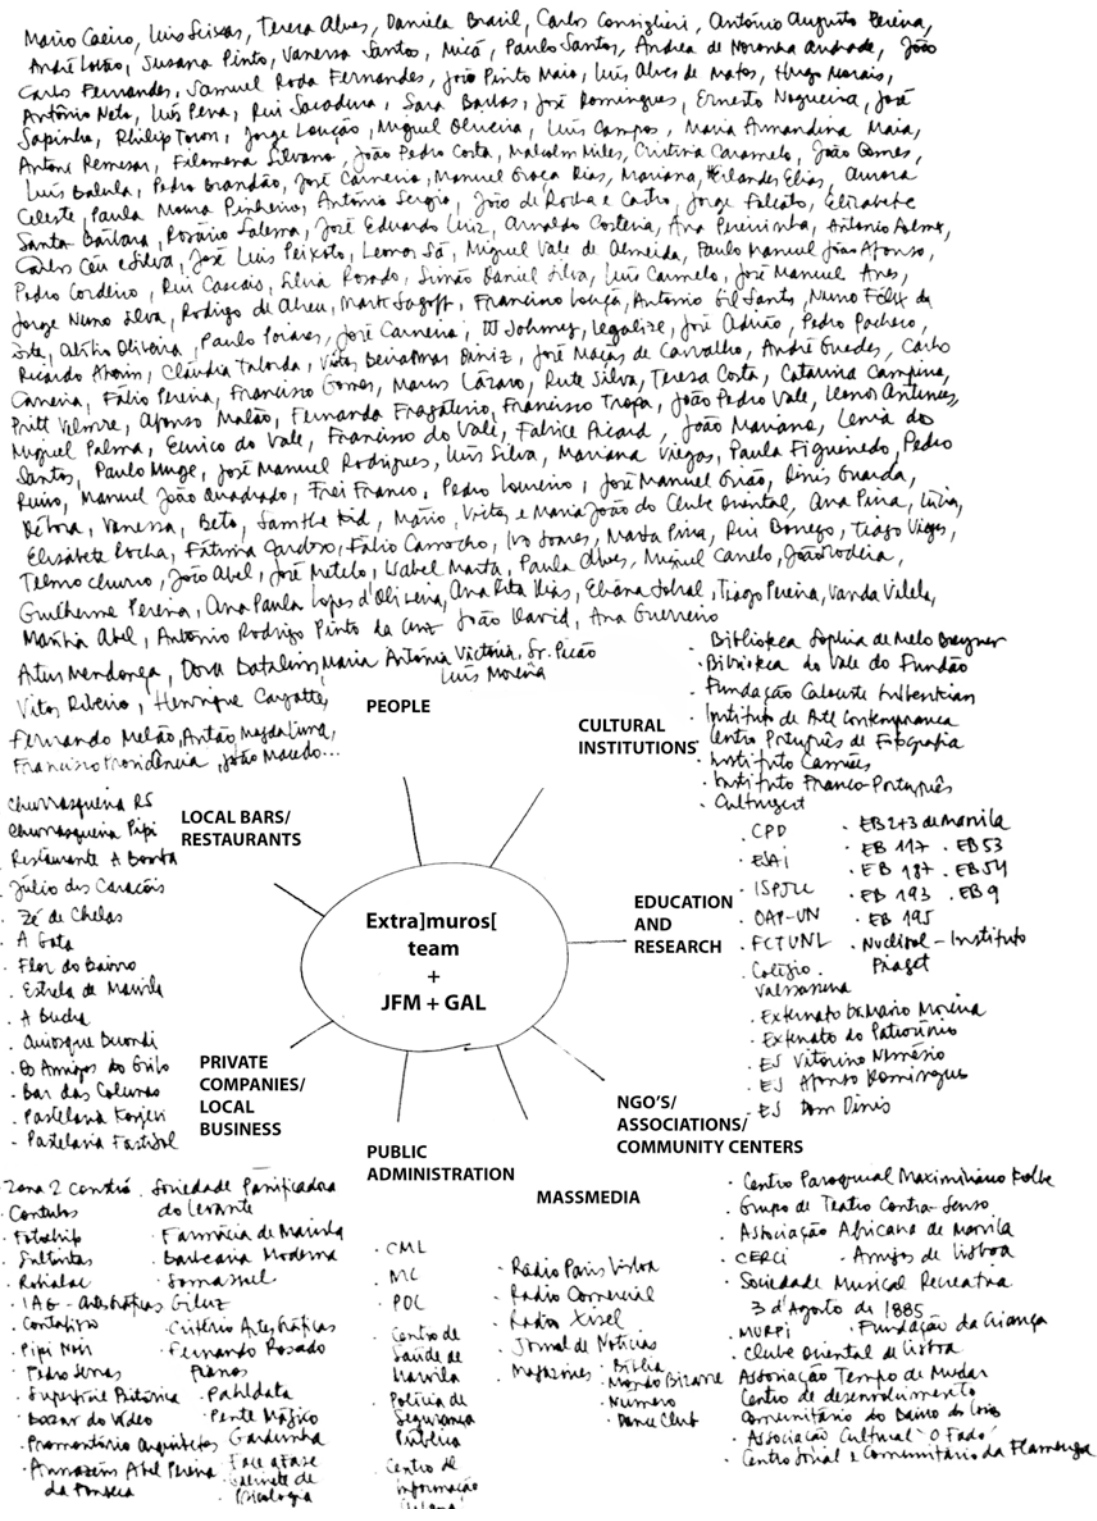 Mário Caeiro, Luís Seixas, Teresa Alves, Daniela Brasil, Carlos Consiglieri, António Augusto Pereira,
André Susana Pinto, Vanessa Santos, Micá, Paulo Santos, Andrea de Noronha Andrade, João
Carlos Fernandes, Samuel Roda Fernandes, João Pinto Maia, Luís Alves de Matos, Hugo Morais,
António Neto, Luís Pena, Rui Sacadura, Sara José Domingues, Ernesto Nogueira, José
Sapinho, Philip Jorge Loução, Miguel Oliveira, Luís Campos, Maria Armandina Maia,
Antoni Remesar, Filomena Silvano, João Pedro Costa, Malcolm Miles, Cristina Caramelo, João Gomes,
Luís Balula, Pedro Brandão, José Carneiro, Manuel Graça Dias, Mariana, Elias, Aurora
Celeste, Paula Moura Pinheiro, António Sergio, João de Rocha e Castro, Jorge Falcato, Elisabete
Santa Bárbara, Rosário Salema, José Eduardo Luiz, Arnaldo Costeira, Ana Pereirinha, António
Carlos Céu e Silva, José Luis Peixoto, Leonor Sá, Miguel Vale de Almeida, Paulo Manuel João Afonso,
Pedro Cordeiro, Rui Cascais, Silvia Rosado, Simão Daniel Silva, Luís Carmelo, José Manuel Anes,
Jorge Nuno Silva, Rodrigo de Abreu, Mark Sagoff, Francisco Louçã, Antonio Gil Santos, Nuno Félix da
Oliveira, Paulo José Carneiro, DJ Johnny, Legalize, José Adrião, Pedro Pacheco,
Ricardo Cláudia Taborda, Diniz, José Maças de Carvalho, André Guedes, Carlos
Carneiro, Fábio Pereira, Francisco Gomes, Marcos Lázaro, Rute Silva, Teresa Costa, Catarina Campino,
Priit Afonso Malão, Fernanda Fragateiro, Francisco Tropa, João Pedro Vale, Leonor Antunes,
Miguel Palma, Eurico do Vale, Francisco do Vale, Fabrice Picard, João Mariano, do
Santos, Paulo Muge, José Manuel Rodrigues, Luís Silva, Mariana Viegas, Paula Figueiredo, Pedro
Manuel João Quadrado, Frei Franco, Pedro Loureiro, José Manuel Dinis Guarda,
Débora, Vanessa, Beto, Sam the Kid, Mário, Victor e Maria João do Clube Oriental, Ana Pina, Lúcia,
Elisabete Rocha, Fátima Cardoso, Fábio Camocho, Ivo Soares, Marta Pina, Rui Borrego, Tiago
Telmo João Abel, José Metelo, Isabel Marta, Paula Alves, Miguel Canelo, João
Guilherme Pereira, Ana Paula Lopes d'Oliveira, Ana Rita Dias, Eliana Sobral, Tiago Pereira, Vanda Vilela,
Abel, António Rodrigo Pinto da Cruz João David, Ana Guerreiro
Artur Mendonça, Dora Batalim, Maria Antónia Victória, Sr. Picão
Luís Moreira
Vitor Ribeiro, Henrique Cayatte,
Fernando Melão, Antão, Magda Lima,
Francisco Providência, João Macedo...
PEOPLE
CULTURAL
INSTITUTIONS
· Biblioteca Sophia de Melo Breyner
· Biblioteca do Vale do Fundão
· Fundação Calouste Gulbenkian
· Instituto de Arte Contemporanea
· Centro Português de Fotografia
· Instituto Camões
· Instituto Franco-Português
· Culturgest
LOCAL BARS/
RESTAURANTS
Churrasqueira RS
Churrasqueira Pipi
Restaurante A
Júlio dos Caracóis
· Zé de Chelas
· A Gata
· Flor do Bairro
· Estrela de Marvila
· A Bucha
· Quiosque Buondi
· Os Amigos do Grilo
· Bar das Colunas
· Pastelaria
· Pastelaria
Extra]muros[
team
+
JFM + GAL
EDUCATION
AND
RESEARCH
· CPD
· ESAI
· OAP-UN
· FCTUNL
· Colégio
Valsassina
· EB 2+3 de Marvila
· EB 117 · EB 53
· EB 187 · EB 54
· EB 193 · EB 9
· EB 195
· Nuclisol - Instituto
Piaget
· Externato Dr. Mário Moreira
· Externato do Patrocínio
· ES Vitorino Nemésio
· ES Afonso Domingues
· ES Dom Dinis
PRIVATE
COMPANIES/
LOCAL
BUSINESS
· Zona 2
· Contubos
· Robialac
· IAG - Artes Gráficas
· Pipi
· Bazar do Vídeo
· Promontório Arquitectos
· Armazéns Abel Pereira
da Fonseca
· Sociedade Panificadora
do Levante
· Farmácia de Marvila
· Barbearia Moderna
· Critério Artes Gráficas
· Fernando Rosado
Pianos
· Pahldata
· Pente Mágico
Face a Face
· Gabinete de
Psicologia
PUBLIC
ADMINISTRATION
· CML
· MC
· POC
· Centro de
Saúde de
Marvila
· Polícia de
Segurança
Pública
· Centro de
Informação
MASSMEDIA
· Rádio Paris Lisboa
· Radio Comercial
· Radio Xisel
· Jornal de Notícias
· Magazines · Bíblia
· Mondo Bizarre
· Número
· Dance Club
NGO'S/
ASSOCIATIONS/
COMMUNITY CENTERS
· Centro Paroquial Maximiliano Kolbe
· Grupo de Teatro Contra-Senso
· Associação Africana de Marvila
· CERCI · Amigos de Lisboa
· Sociedade Musical Recreativa
3 d'Agosto de 1885
· MURPI · Fundação da Criança
· Clube Oriental de Lisboa
Associação Tempo de Mudar
Centro de desenvolvimento
Comunitário do Bairro dos Loios
· Associação Cultural O Fado
· Centro Social e Comunitário da Flamenga